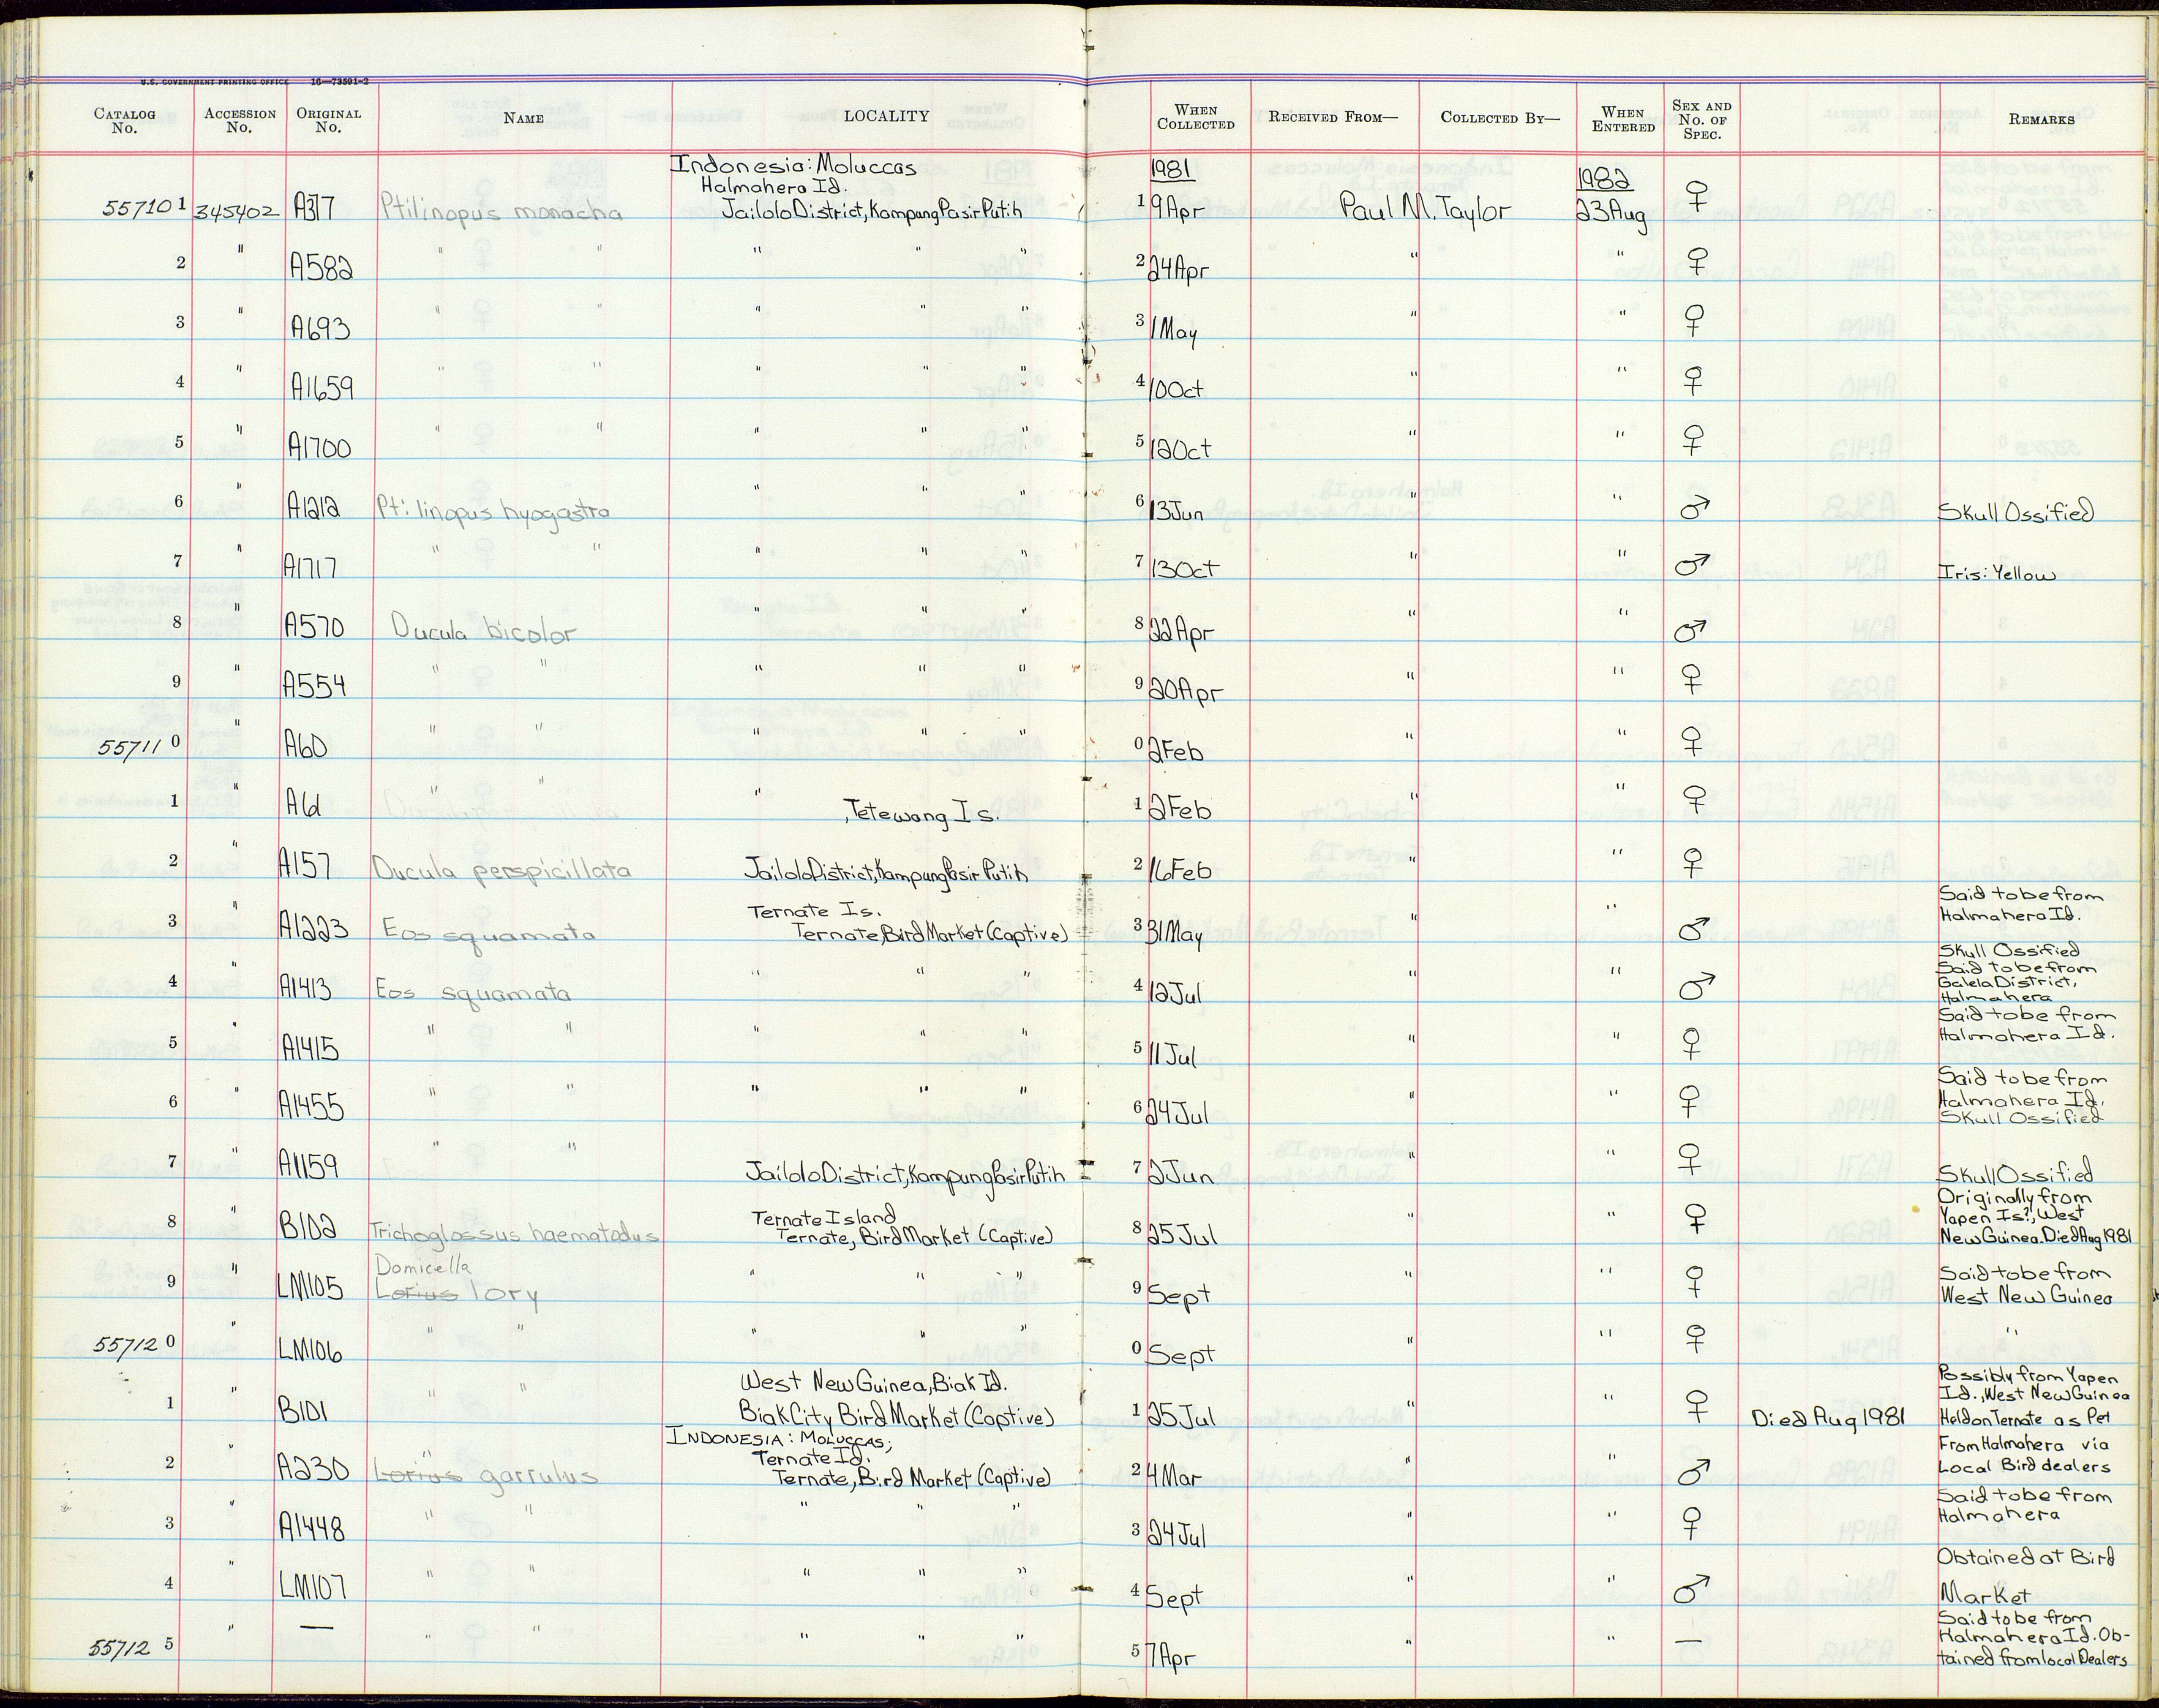 U.S. GOVERNMENT PRINTING OFFICE 16—73591-2
CATALOG No. ACCESSION No. ORIGINAL No. NAME LOCALITY WHEN COLLECTED RECEIVED FROM— COLLECTED BY— WHEN ENTERED SEX AND No. OF SPEC. REMARKS
Indonesia: Moluccas 1981
Halmahera Id. 1982
557101 345402 A317 Ptilinopus monacha Jailolo District, Kampung Pasir Putih 1 19Apr Paul M. Taylor 23Aug ♀
2 " A582 " " " " " 2 24Apr " " ♀
3 " A693 " " " " " 3 1May " " ♀
4 " A1659 " " " " " 4 10Oct " " ♀
5 " A1700 " " " " " 5 12Oct " " ♀
6 " A1212 Ptilinopus hyogastra " " " 6 13Jun " " ♂ Skull Ossified
7 " A1717 " " " " " 7 13Oct " " ♂ Iris: Yellow
8 " A570 Ducula bicolor " " " 8 22Apr " " ♂
9 " A554 " " " " " 9 20Apr " " ♀
55711 0 A60 " " " " " 0 2Feb " " ♀
1 " A61 " " " , Tetewang Is. 1 2Feb " " ♀
2 " A157 Ducula perspicillata Jailolo District, Kampung Pasir Putih 2 16Feb " " ♀
Ternate Is. Said to be from
3 " A1223 Eos squamata Ternate, Bird Market (Captive) 3 31May " " ♂ Halmahera Id.
Skull Ossified
4 " A1413 Eos squamata " " " 4 12Jul " " ♂ Said to be from
Galela District,
Halmahera
5 " A1415 " " " " " 5 11Jul " " ♀ Said to be from
Halmahera Id.
6 " A1455 " " " " " 6 24Jul " " ♀ Said to be from
Halmahera Id.
Skull Ossified
7 " A1159 " " Jailolo District, Kampung Pasir Putih 7 2Jun " " ♀ Skull Ossified
Ternate Island Originally from
8 " B102 Trichoglossus haematodus Ternate, Bird Market (Captive) 8 25Jul " " ♀ Yapen Is?, West
New Guinea. Died Aug 1981
Domicella
9 " LM105 Lorius lory " " " 9 Sept " " ♀ Said to be from
West New Guinea
55712 0 " LM106 " " " " " 0 Sept " " ♀ "
West New Guinea, Biak Id. Possibly from Yapen
Id., West New Guinea
1 " B101 " " Biak City Bird Market (Captive) 1 25Jul " " ♀ Died Aug 1981 Held on Ternate as Pet
INDONESIA: MOLUCCAS;
Ternate Id. From Halmahera via
2 " A230 " Lorius garrulus Ternate, Bird Market (Captive) 2 4Mar " " ♂ Local Bird dealers
3 " A1448 " " " " " 3 24Jul " " ♀ Said to be from
Halmahera
4 " LM107 " " " " " 4 Sept " " ♂ Obtained at Bird
Market
55712 5 " — " " " " " 5 7Apr " " — Said to be from
Halmahera Id. Ob-
tained from local Dealers